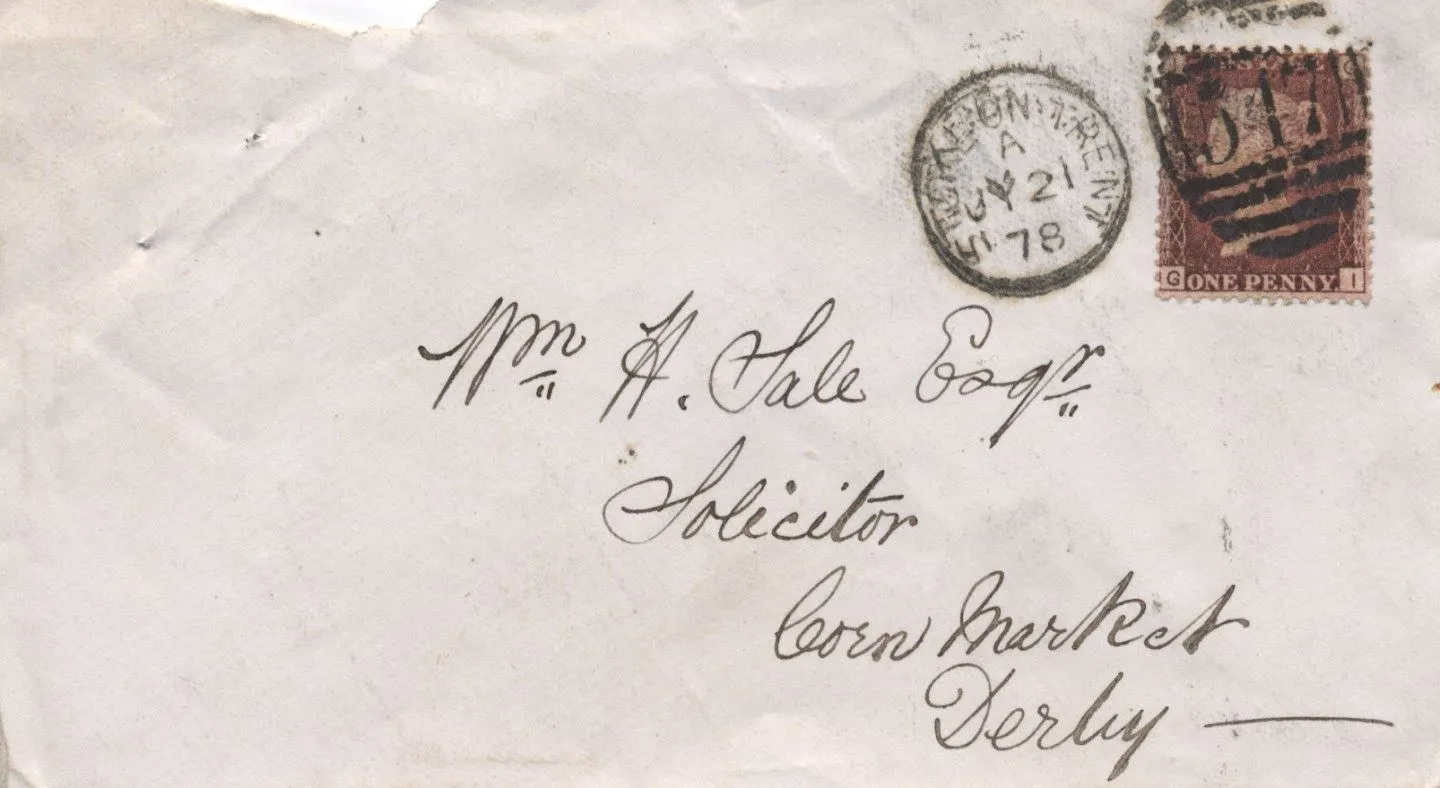 STOKE-ON-TRENT
A
21
78
547
G ONE PENNY I
Wm H. Sale Esqr
Solicitor
Corn Market
Derby